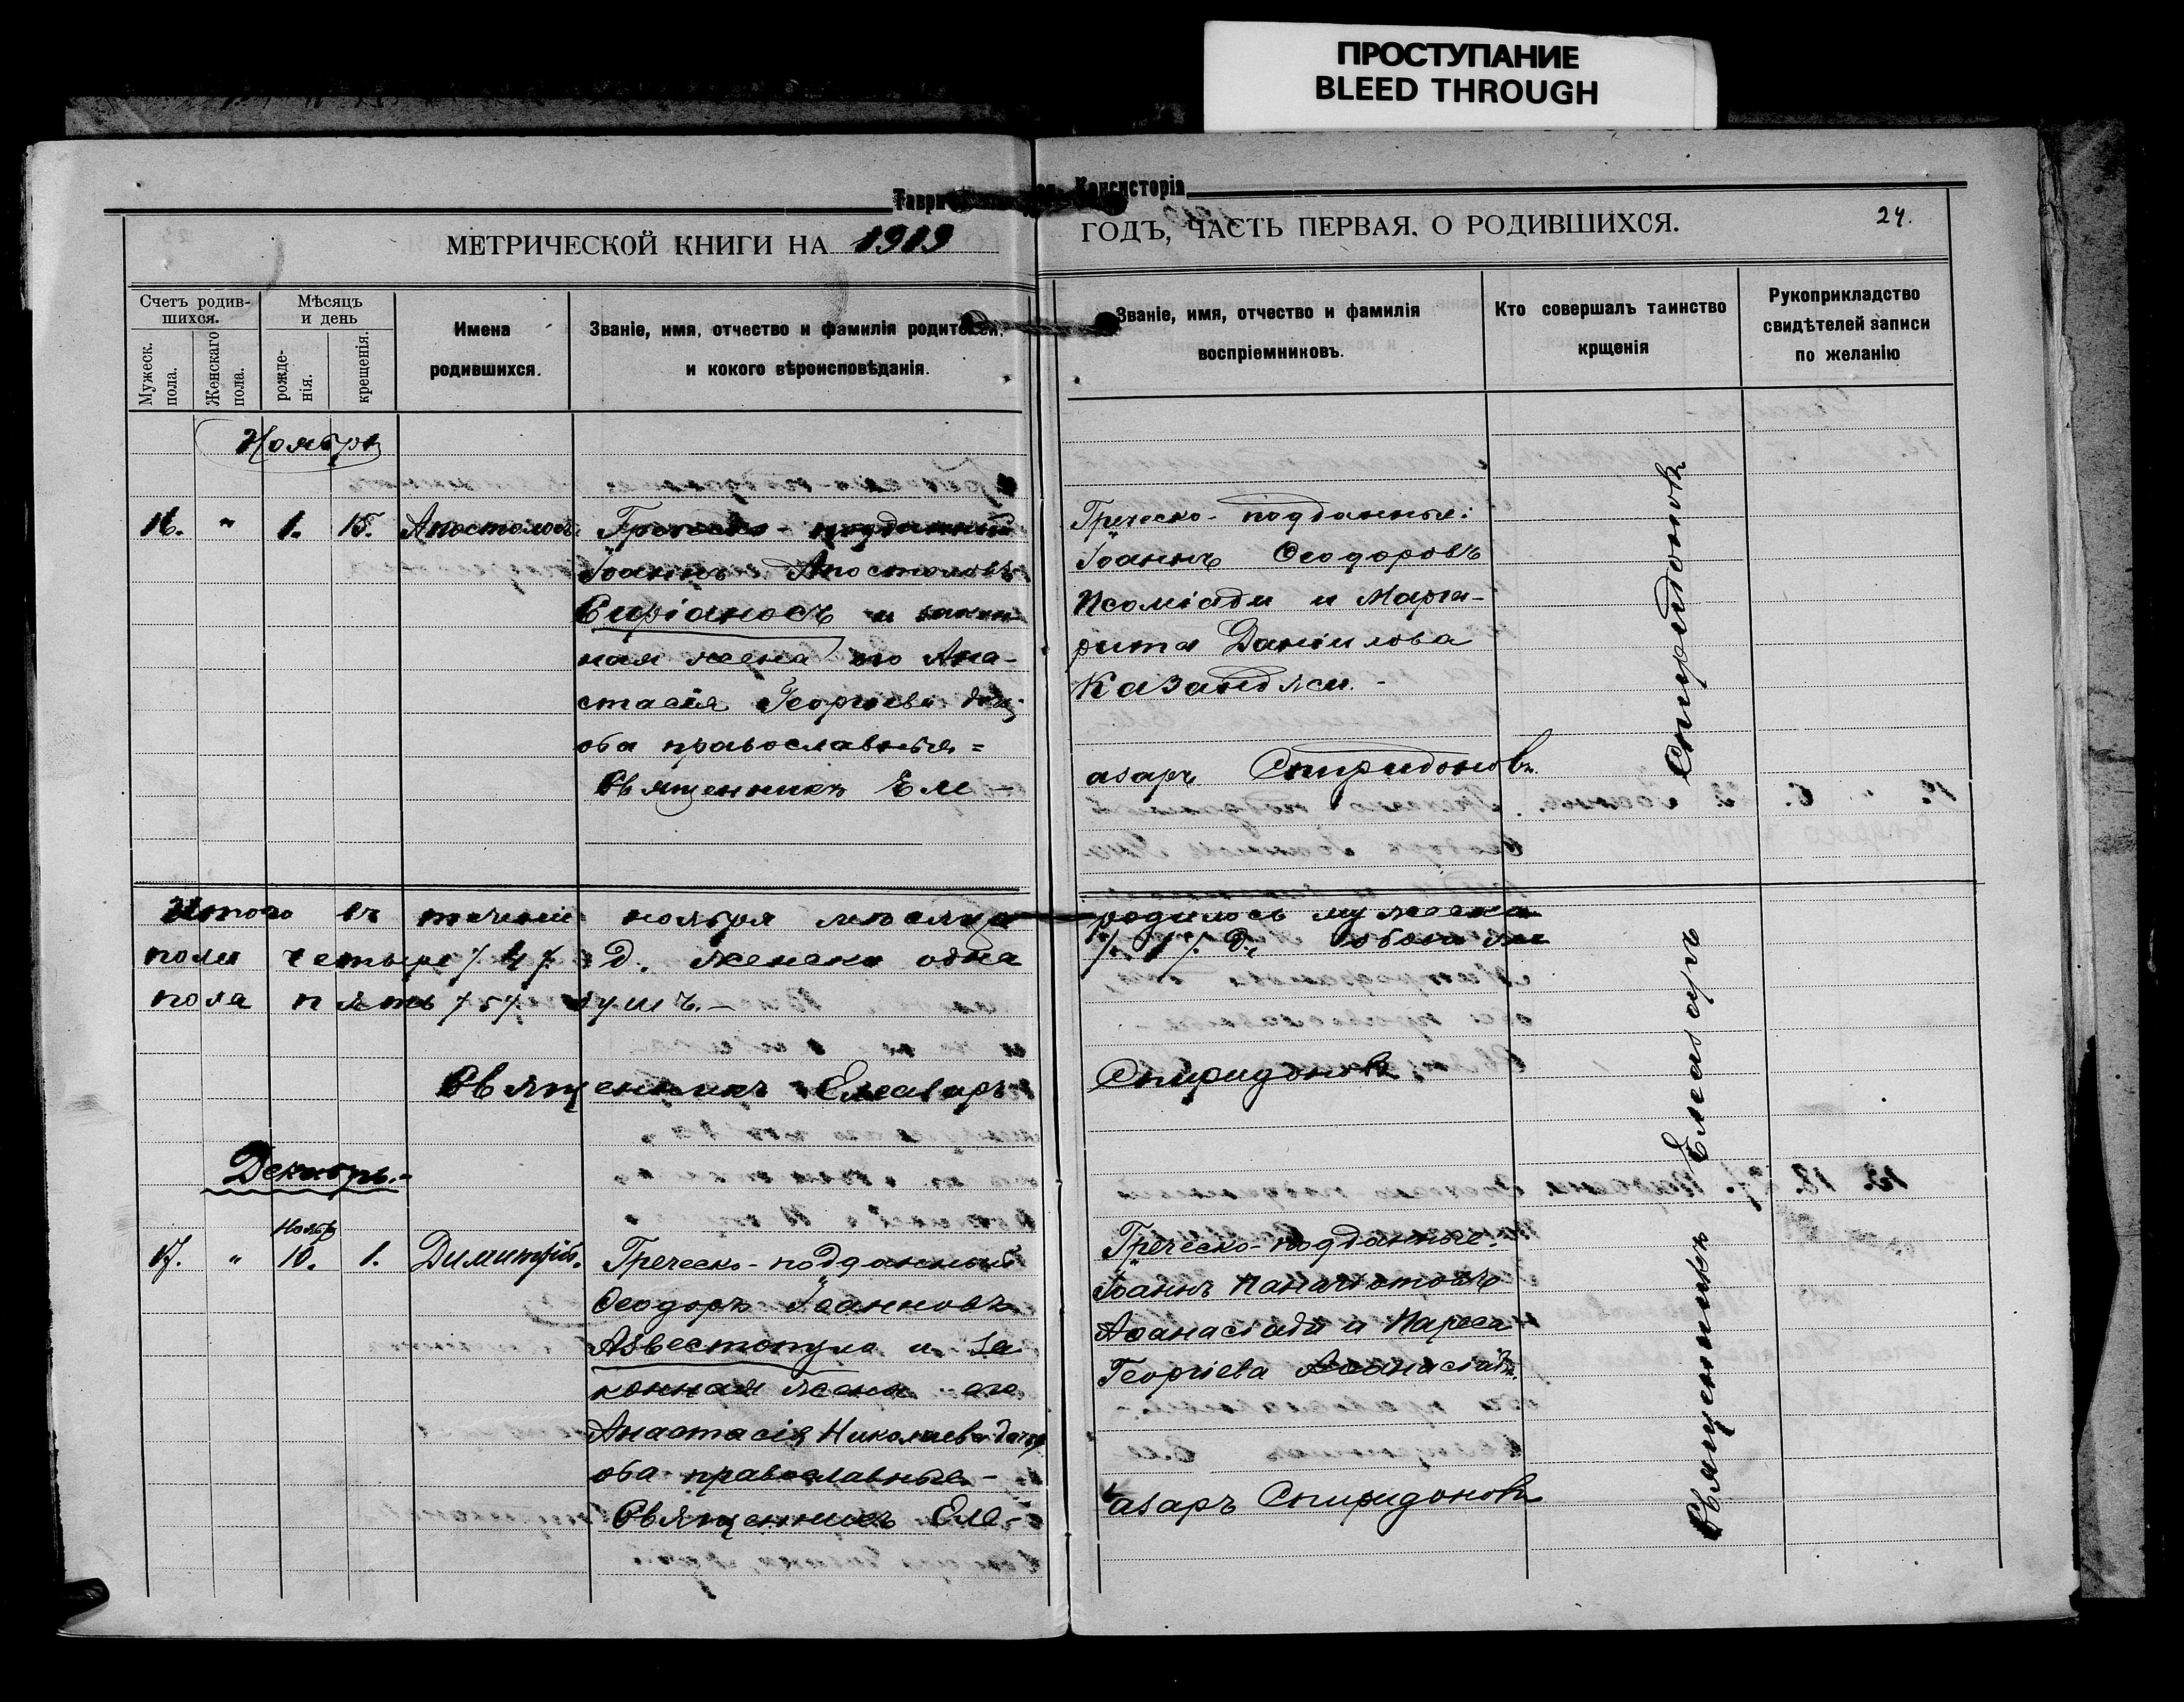 ПРОСТУПАНИЕ
BLEED THROUGH
Консисторія
МЕТРИЧЕСКОЙ КНИГИ НА 1919
ГОДЪ, ЧАСТЬ ПЕРВАЯ, О РОДИВШИХСЯ.
24.
Счетъ родив-
шихся.
Мужеск.
пола.
Женскаго
пола.
Мѣсяцъ
и день
рожде-
нія.
крещенія.
Имена
родившихся.
Званіе, имя, отчество и фамилія родителей,
и кокого вѣроисповѣданія.
Званіе, имя, отчество и фамилія
воспріемниковъ.
Кто совершалъ таинство
крщенія
Рукоприкладство
свидѣтелей записи
по желанію
Ноябрь
16. " 1. 15. Апостолосъ.
Греческо-подданный
Іоаннъ Апостоловъ
и закон
ная жена его Ана-
стасія Георгіева
оба православные =
Священникъ Еле-
Греческо-подданные:
Іоаннъ Ѳеодоровъ
Псоміади и Марга-
рита Даніилова
Казанджи.-
азаръ Спиридоновъ.
Итого въ теченіи ноября мѣсяца родилось мужеска
пола четыре /4/ д. женска одна /1/ д., обоего же
пола пять /5/ душъ.-
Священникъ Елеазаръ Спиридоновъ
Декабрь.-
Ноябр
17. " 10. 1. Димитрій.
Греческо-подданный
Ѳеодоръ Іоанновъ
Азвестопуло и за
конная жена его
Анастасія Николаева
оба православные-
Священникъ Еле-
Греческо-подданные:
Іоаннъ Панагіотовъ
Аѳанасіади и
Георгіева Аѳанасіади.
азаръ Спиридоновъ
Священникъ Елеазаръ Спиридоновъ